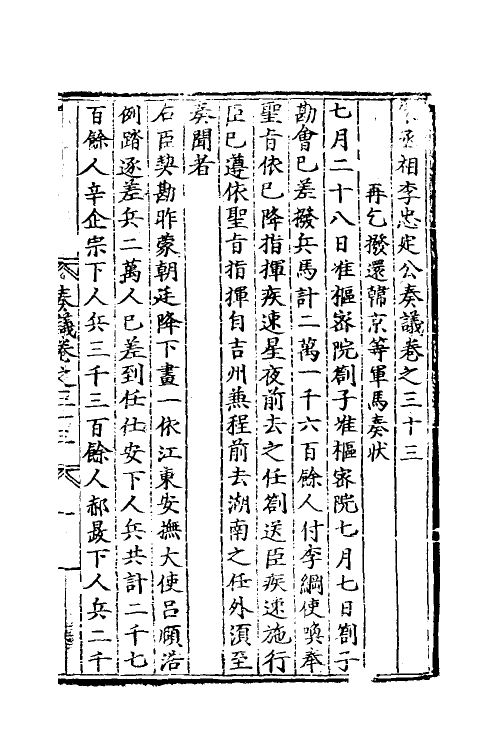 丞相李忠定公奏議卷之三十三
再乞撥還韓京等軍馬奏狀
七月二十八日准樞密院劄子准樞密院七月七日劄子
勘會已差撥兵馬計二萬一千六百餘人付李綱使喚奉
聖旨依已降指揮疾速星夜前去之任劄送臣疾速施行
臣已遵依聖旨指揮自吉州兼程前去湖南之任外須至
奏聞者
右臣契勘昨蒙朝廷降下畫一依江東安撫大使呂頤浩
例踏逐差兵二萬人已差到任仕安下人兵共計二千七
百餘人辛企宗下人兵三千三百餘人郝晸下人兵二千
奏議卷之三十三
一